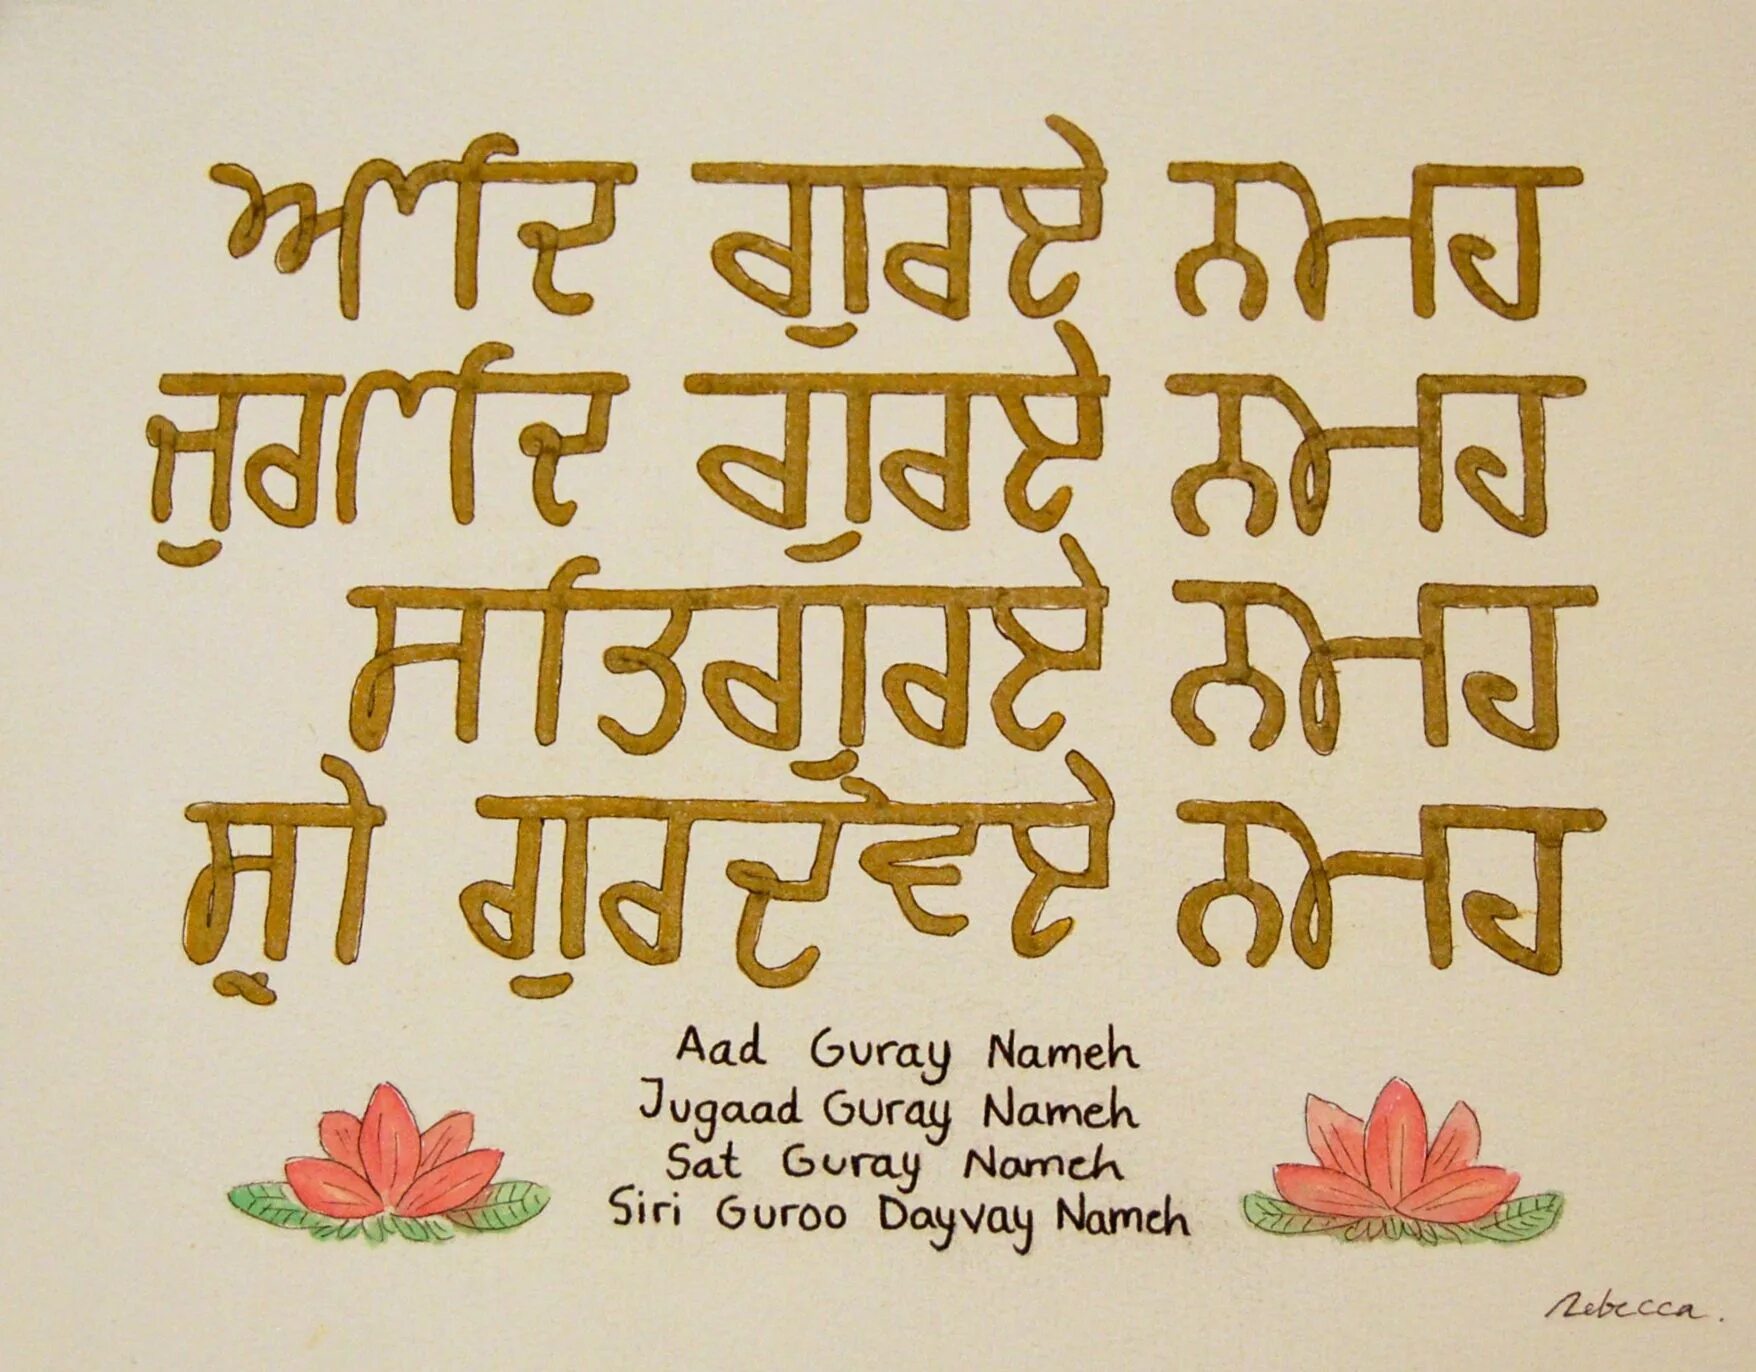 ਆਦਿ ਗੁਰਏ ਨਮਹ
ਜੁਗਾਦਿ ਗੁਰਏ ਨਮਹ
ਸਤਿਗੁਰਏ ਨਮਹ
ਸ੍ਰੀ ਗੁਰਦੇਵਏ ਨਮਹ
Aad Guray Nameh
Jugaad Guray Nameh
Sat Guray Nameh
Siri Guroo Dayvay Nameh
Rebecca.